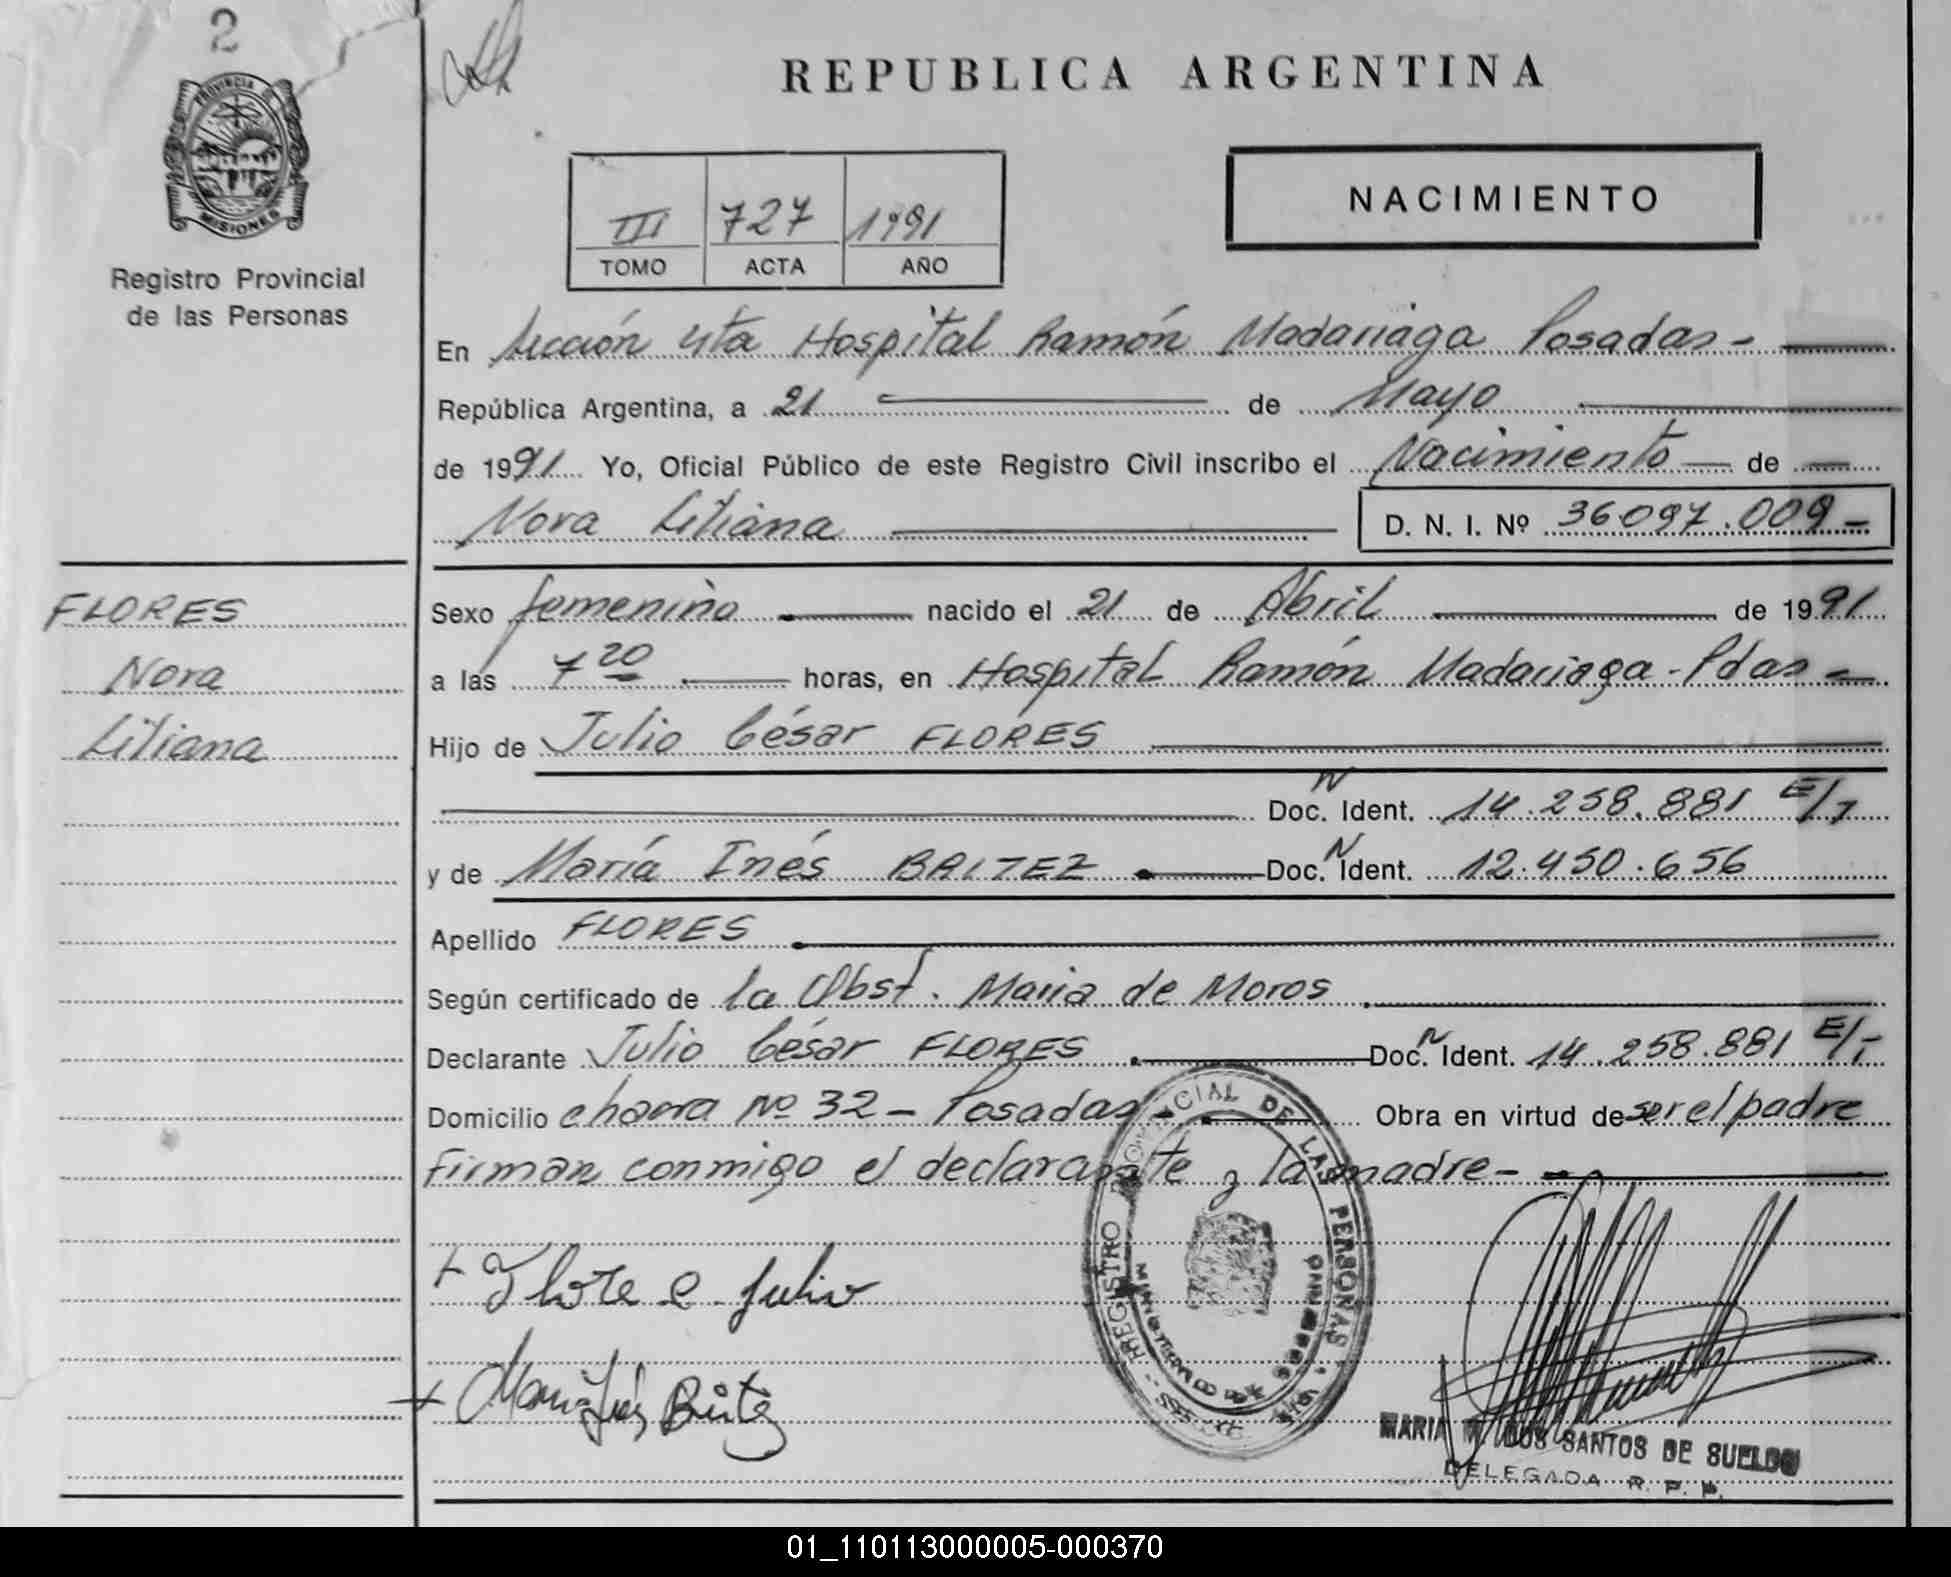 2
REPUBLICA ARGENTINA
PROVINCIA DE
MISIONES
Registro Provincial
de las Personas
III 727 1991
TOMO ACTA AÑO
NACIMIENTO
En Sección 4ta Hospital Ramón Madariaga Posadas-
República Argentina, a 21 de Mayo
de 1991 Yo, Oficial Público de este Registro Civil inscribo el Nacimiento de
Nora Liliana D. N. I. Nº 36097.009-
FLORES
Nora
Liliana
Sexo femenino nacido el 21 de Abril de 1991
a las 7 20 horas, en Hospital Ramón Madariaga-Pdas-
Hijo de Julio César FLORES
Doc. N Ident. 14.258.881 E/T
y de María Inés BAITEZ Doc. N Ident. 12.450.656
Apellido FLORES
Según certificado de la Obst. Maria de Moros
Declarante Julio César FLORES Doc. N Ident. 14.258.881 E/T
Domicilio chacra Nº 32- Posadas- Obra en virtud de ser el padre
Firman conmigo el declarante y la madre-
REGISTRO PROVINCIAL DE LAS PERSONAS
MINISTERIO DE GOBIERNO
+ Flore e Julio
+ Maria Inés Baitez
MARIA DOS SANTOS DE SUELDO
DELEGADA R. P. P.
01_110113000005-000370